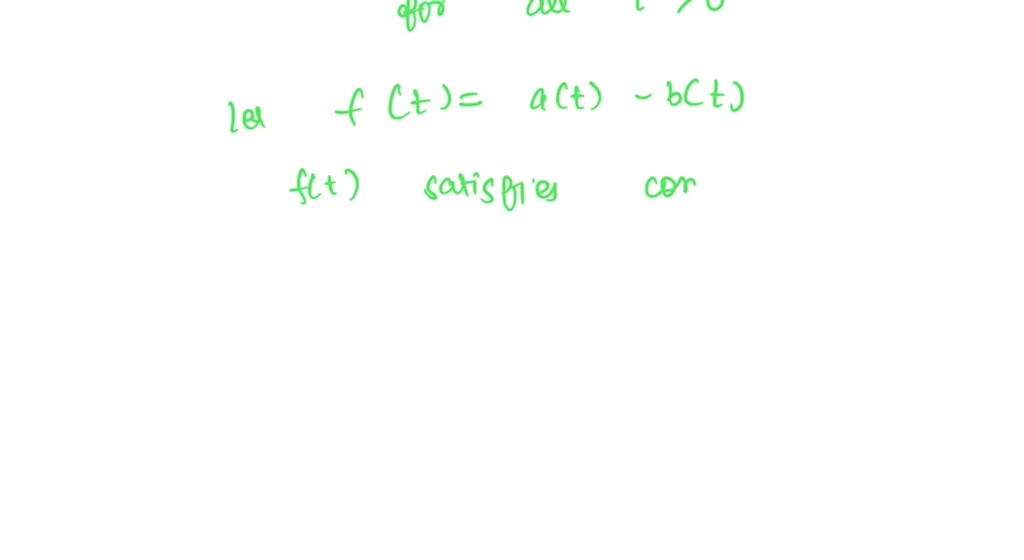 for all t > 0
let f(t) = a(t) - b(t)
f(t) satisfies con